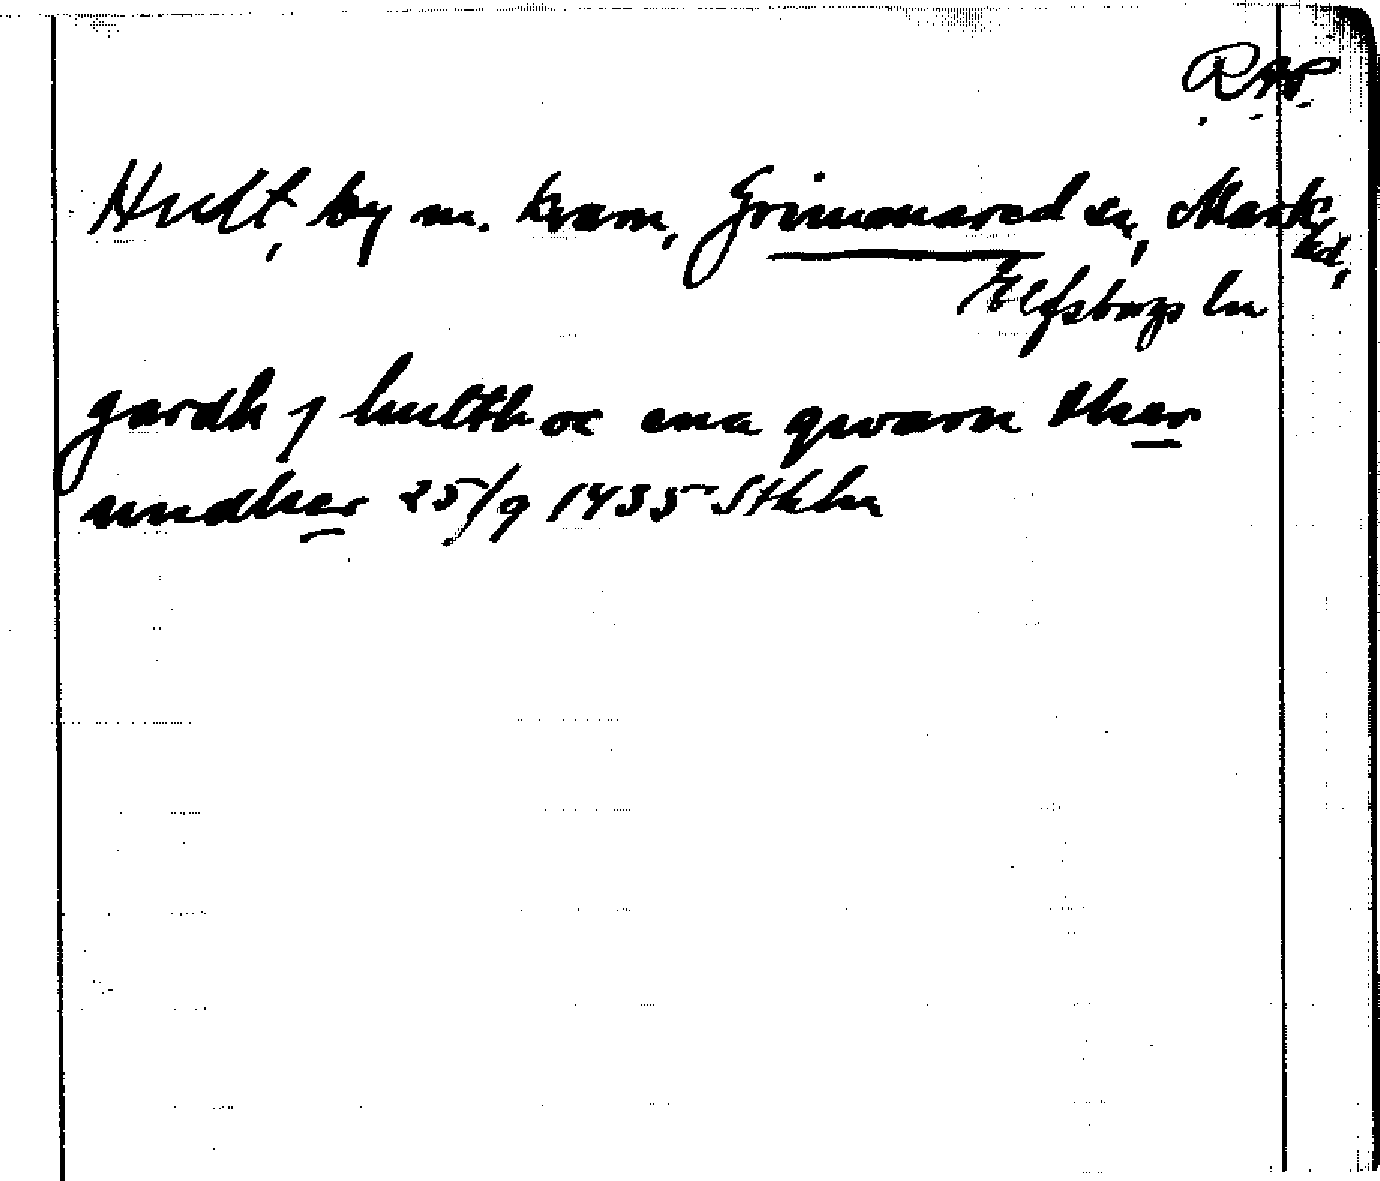 RAP.
Hult, by m. kvarn, Grimmared sn, Mark
hd,
Elfsborgs ln
gardh j hulth oc ena qwarn ther
undher 25/9 1435 Sthlm